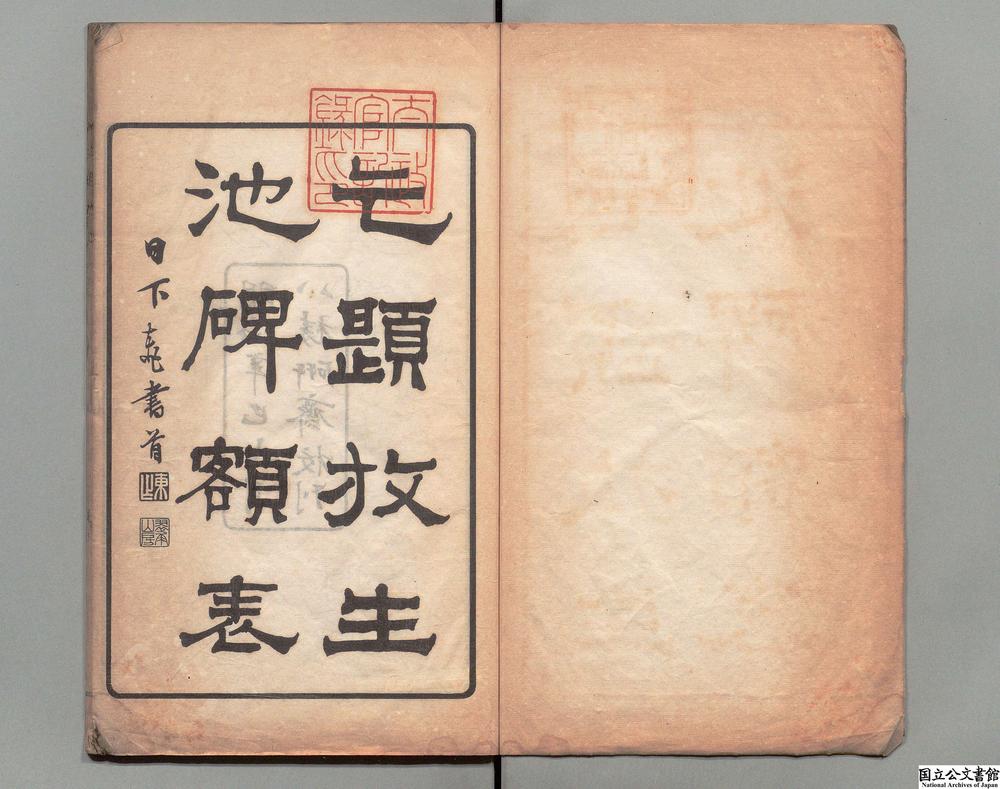 太政
官記
録印
乞題放生
池碑額表
日下
書首
国立公文書館
National Archives of Japan